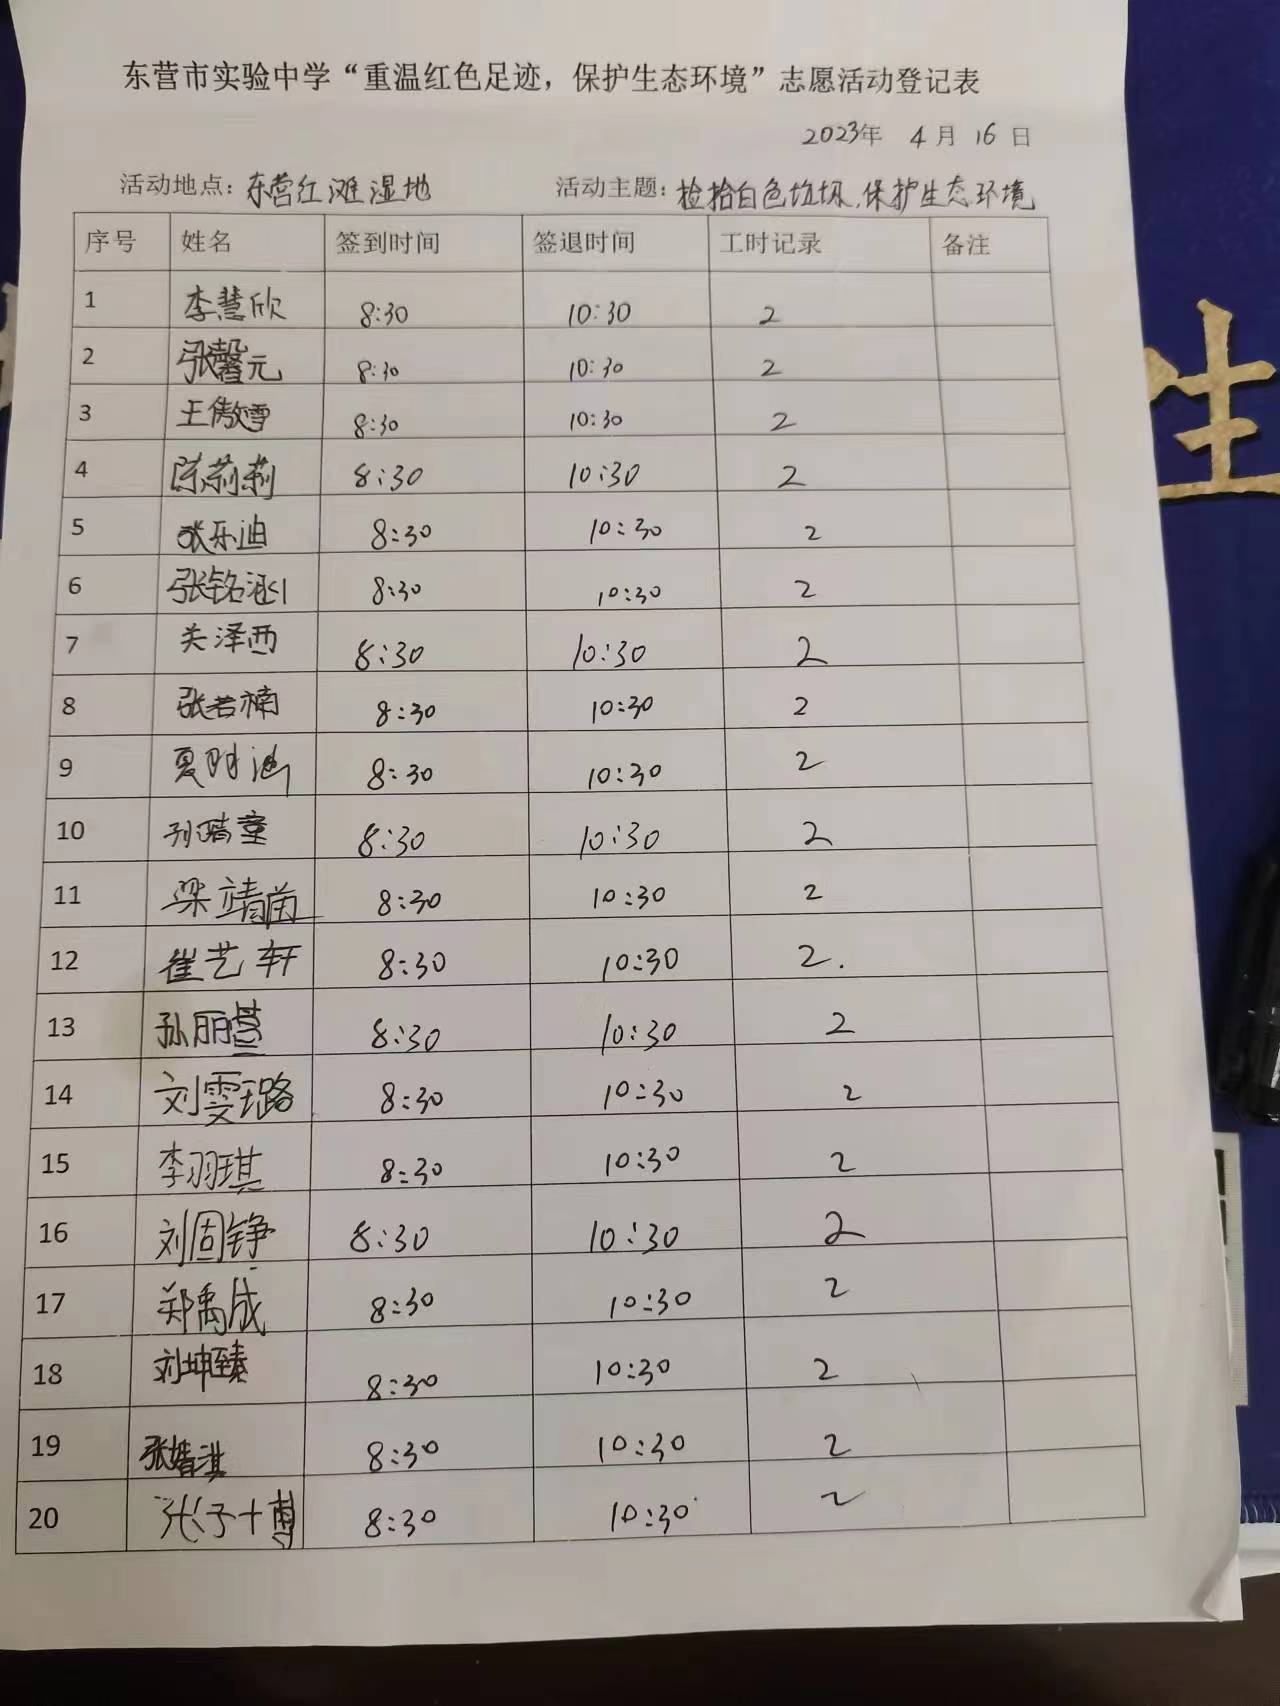 东营市实验中学“重温红色足迹，保护生态环境”志愿活动登记表
2023年 4月 16日
活动地点：东营红滩湿地 活动主题：检拾白色垃圾，保护生态环境
序号 姓名 签到时间 签退时间 工时记录 备注
1 李慧欣 8:30 10:30 2
2 张馨元 8:30 10:30 2
3 王傲雪 8:30 10:30 2
4 陈莉莉 8:30 10:30 2
5 张乐迪 8:30 10:30 2
6 张铭涵 8:30 10:30 2
7 关泽西 8:30 10:30 2
8 张若楠 8:30 10:30 2
9 夏明涵 8:30 10:30 2
10 孙晴童 8:30 10:30 2
11 梁靖茵 8:30 10:30 2
12 崔艺轩 8:30 10:30 2.
13 孙丽萱 8:30 10:30 2
14 刘雯璐 8:30 10:30 2
15 李羽琪 8:30 10:30 2
16 刘固铮 8:30 10:30 2
17 郑禹成 8:30 10:30 2
18 刘坤臻 8:30 10:30 2
19 张婧淇 8:30 10:30 2
20 张子博 8:30 10:30 2
生